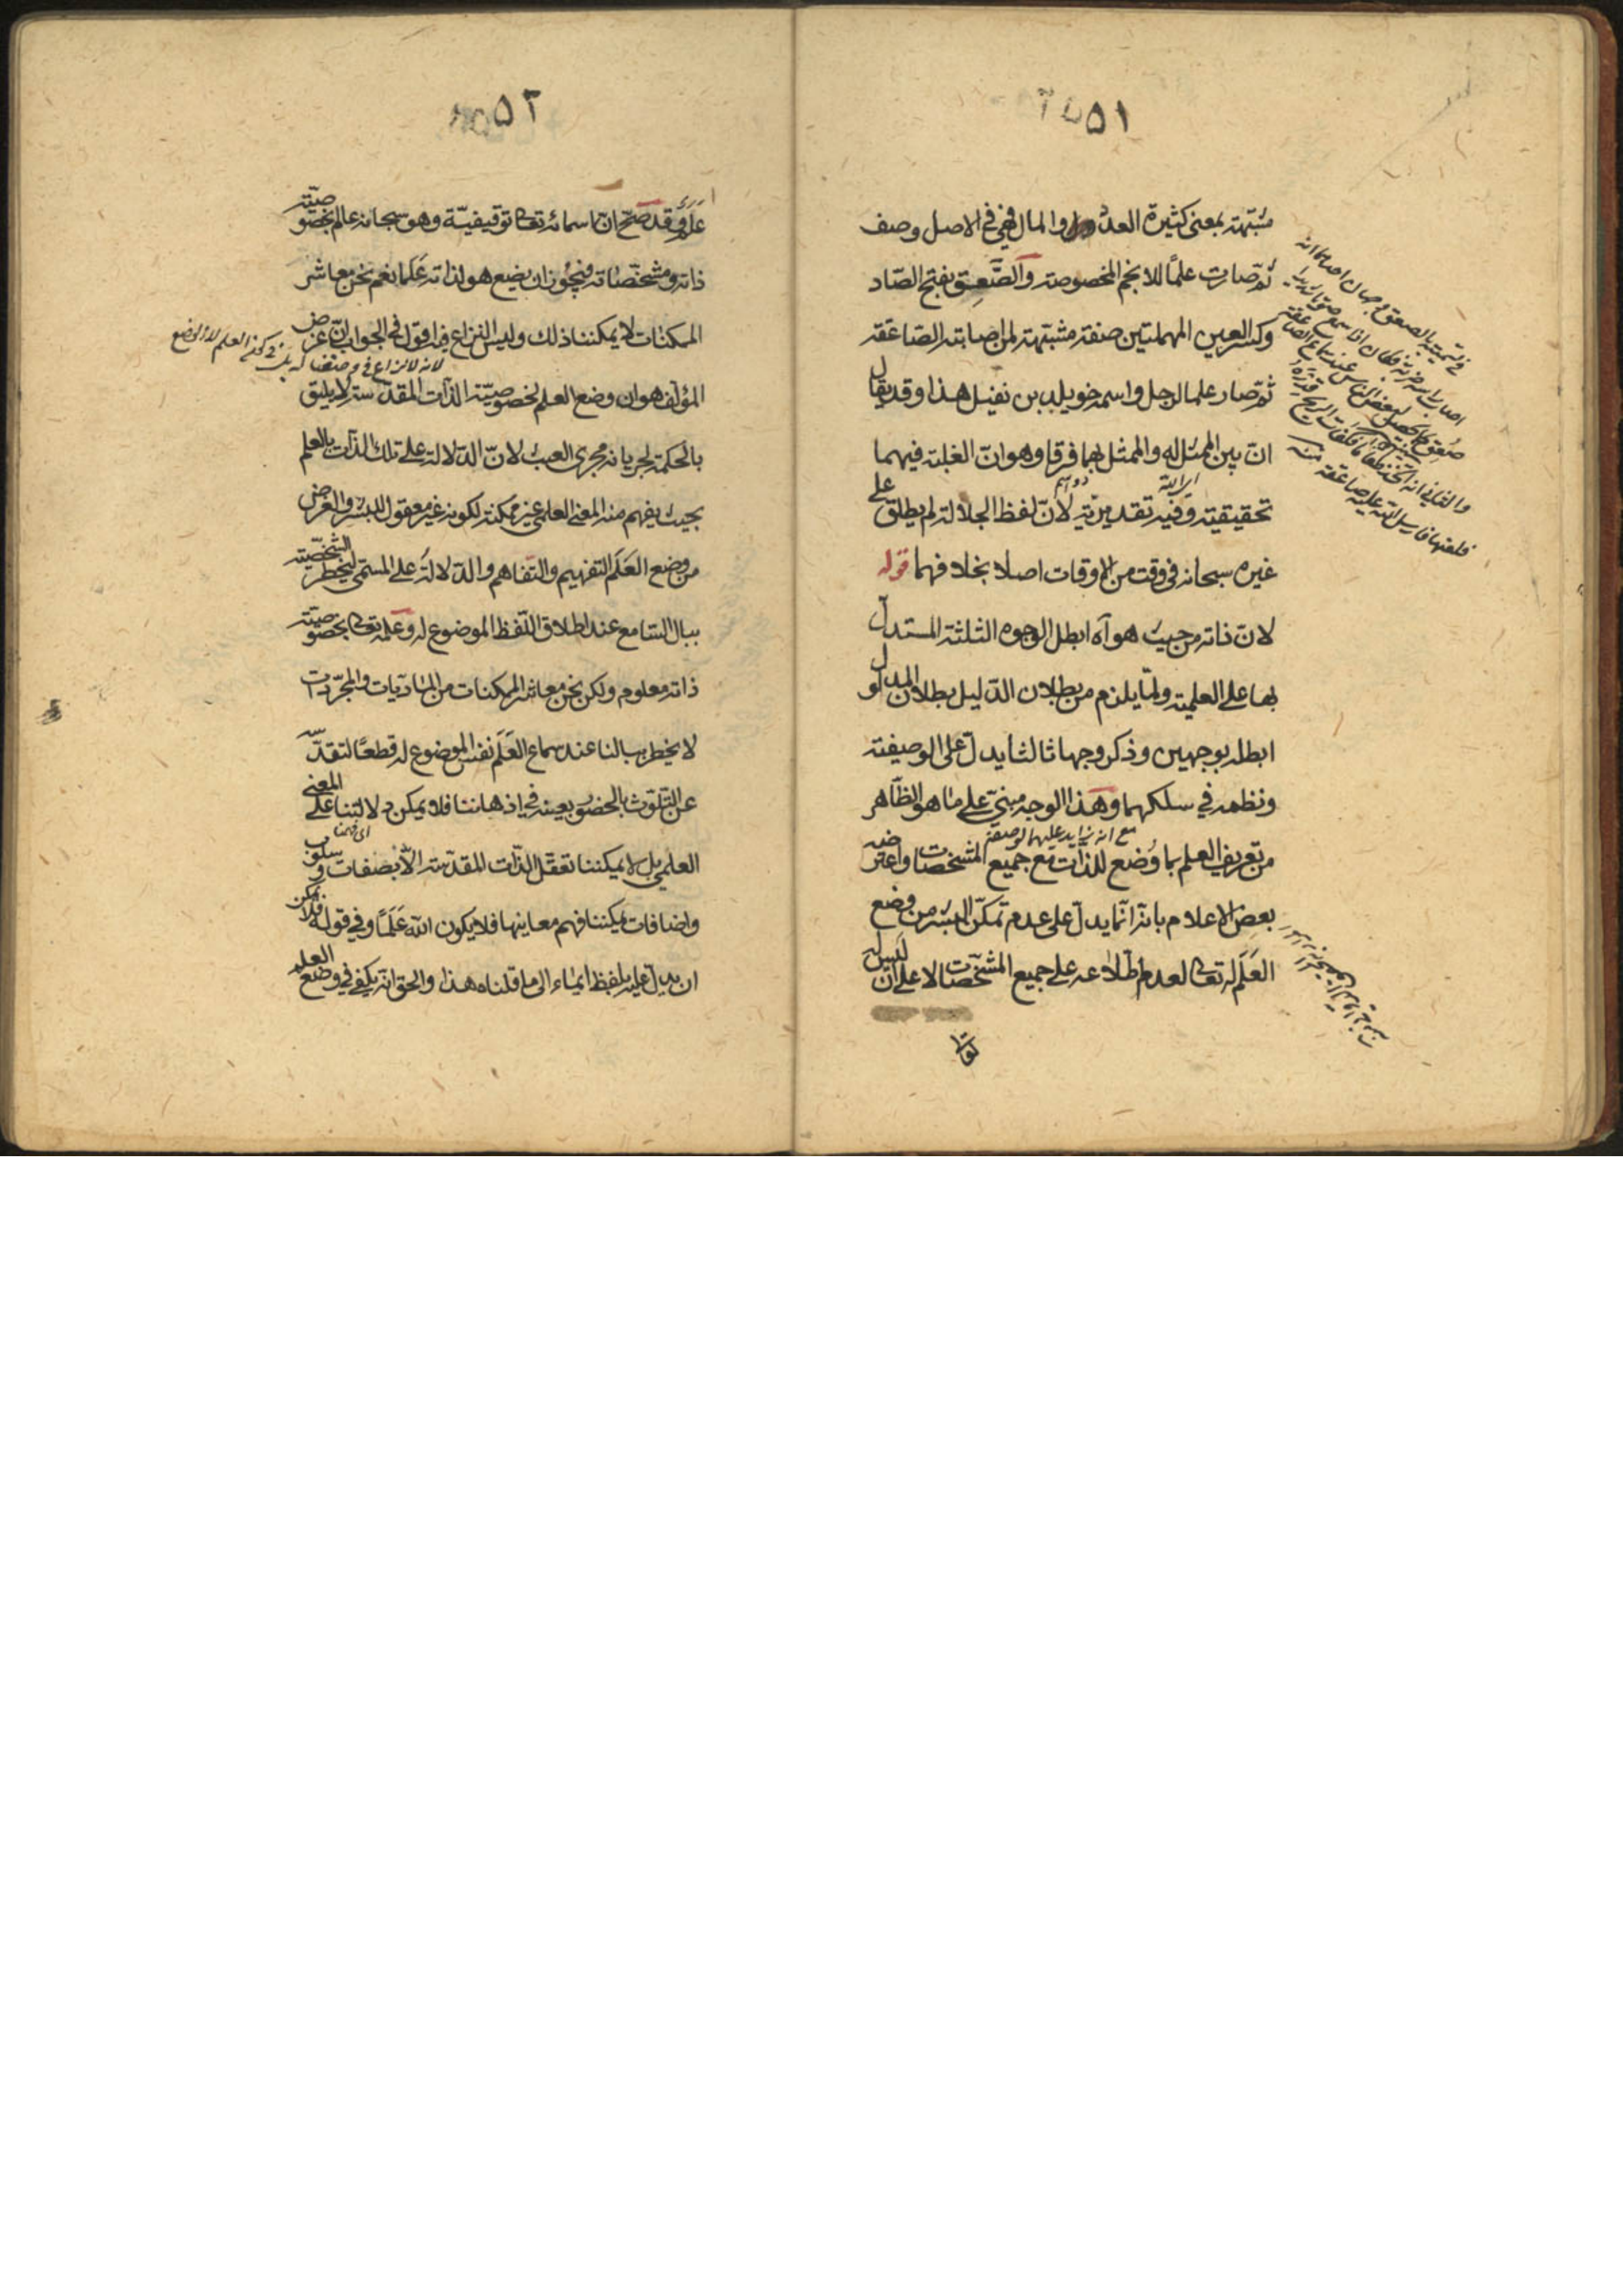 ٥١
مشبّهة بمعنى كثيرة العدد والمال فهي في الاصل وصف
ثمّ صارت علمًا للانجم المخصوصة والصَّعِق بفتح الصّاد
وكسر العين المهملتين صفة مشبّهة لمن اصابته الصّاعقة
ثمّ صار علما لرجل واسمه خويلد بن نفيل هذا وقد يقال
انّ بين الممثل له والممثل بهما فرقا وهو انّ الغلبة فيهما
تحقيقية وفيه تقديريّة لانّ لفظ الجلالة لم يطلق على
غيره سبحانه في وقت من الاوقات اصلا بخلافهما قوله
لانّ ذاته من حيث هو آه ابطل الوجوه الثلثة المستدلّ
بها على العلمية ولمّا يلزم من بطلان الدّليل بطلان المدلول
ابطله بوجهين وذكر وجها ثالثا يدلّ على الوصفية
ونظمه في سلكهما وهذا الوجه مبنيّ على ما هو الظّاهر
من تعريف العلم بما وُضع للذات مع جميع المشخصات واعترضه
بعض الاعلام بانّه انّما يدلّ على عدم تمكّن البشر من وضع
العَلَم له تعالى لعدم اطّلاعه على جميع المشخّصات لا على ان ليس له
في تسمية بالصعق وجهان احدهما انه
٥٢
عَلَم وقد صحّ انّ اسمائه تعالى توقيفيّة وهو سبحانه عالم بخصوصيّة
ذاته ومشخّصاته فيجوز ان يضع هو لذاته عَلَما نعم نحن معاشر
الممكنات لا يمكننا ذلك وليس النزاع فيه اقول في الجواب انّ غرض
المؤلّف هو ان وضع العلم لخصوصيّة الذّات المقدّسة لا يليق
بالحكمة لجريانه مجرى العبث لانّ الدّلالة على تلك الذّات بالعلم
بحيث يفهم منه المعنى العلمي غير ممكنة لكونه غير معقول للبشر والغرض
من وضع العَلَم التفهيم والتّفاهم والدّلالة على المسمّى ليخطر الشّخصيّة
ببال السّامع عند اطلاق اللّفظ الموضوع له وعلمه تعالى بخصوصيّة
ذاته معلوم ولكن نحن معاشر الممكنات من المادّيات والمجرّدات
لا يخطر ببالنا عند سماع العَلَم نفس الموضوع له قطعًا لتقدّسه
عن التلوّث بالحضور بعينه في اذهاننا فلا يمكن دلالتنا على المعنى
العلمي بل لا يمكننا تعقّل الذّات المقدّسة الّا بصفات وسلوب
واضافات يمكننا فهم معاينها فلا يكون الله عَلَمًا وفي قوله فلا يمكن
ان يدلّ عليه بلفظ ايماء الى ما قلناه هذا والحق انّه يكفي في وضع العلم